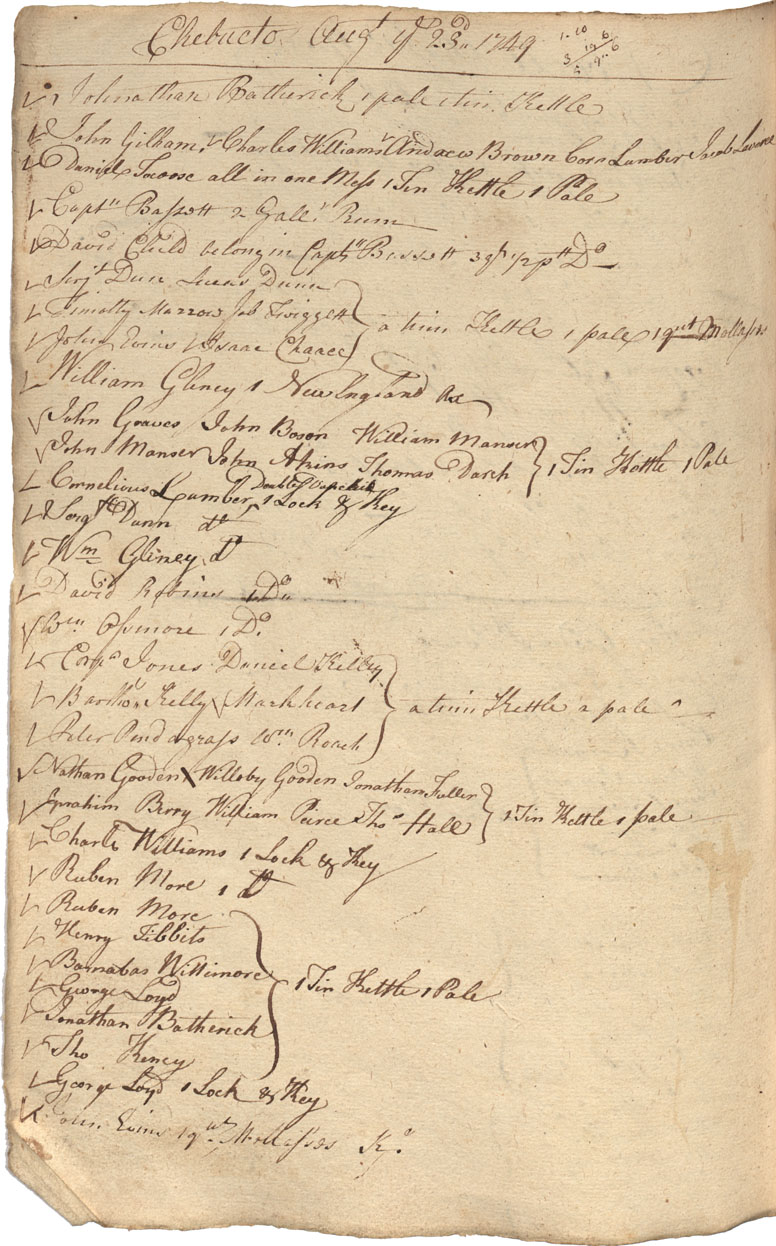 Chebucto Augt ye 23d 1749
Johnathan Batherick 1 pale 1 tin Kettle
John Gilham, Charles Williams Andrew Brown Cors Lumber Jacob
Daniel all in one Mess 1 Tin Kettle 1 Pale
Captn Bassett 2 Galls Rum
David Child belongin Captn Bassett 1/2 Do
Serjt Dun Lucas Dunn
Timothy Marrow Job Twiggett
John Evins Isaac Chancé } a tinn Kettle 1 pale 1 qut Mollasses
William Gliney 1 New England Ax
John Graves, John Boson William Manser
John Manser John Akins Thomas Darch } 1 Tin Kettle 1 Pale
Cornelius Lumber, 1 Double Lock & Key
Sergt Dunn do
Wm Gliney do
David Robins 1 Do
Wm Ossmore 1 Do
Corpl Jones Daniel Killey
Bartho Kelly Markheart } a tinn Kettle a pale
Peter Pendagrass Wm Roach
Nathan Gooden, Willoby Gooden Jonathan Fuller
Eprahim Berry William Peirce Thos Hall } 1 Tin Kettle 1 pale
Charls Williams 1 Lock & Key
Ruben More 1 do
Ruben More
Henry Tibbits
Barnabas Wittimore
George Loyd } 1 Tin Kettle 1 Pale
Jonathan Batherick
Tho Keney
George Loyd 1 Lock & Key
John Evins 1 qut Mollasses